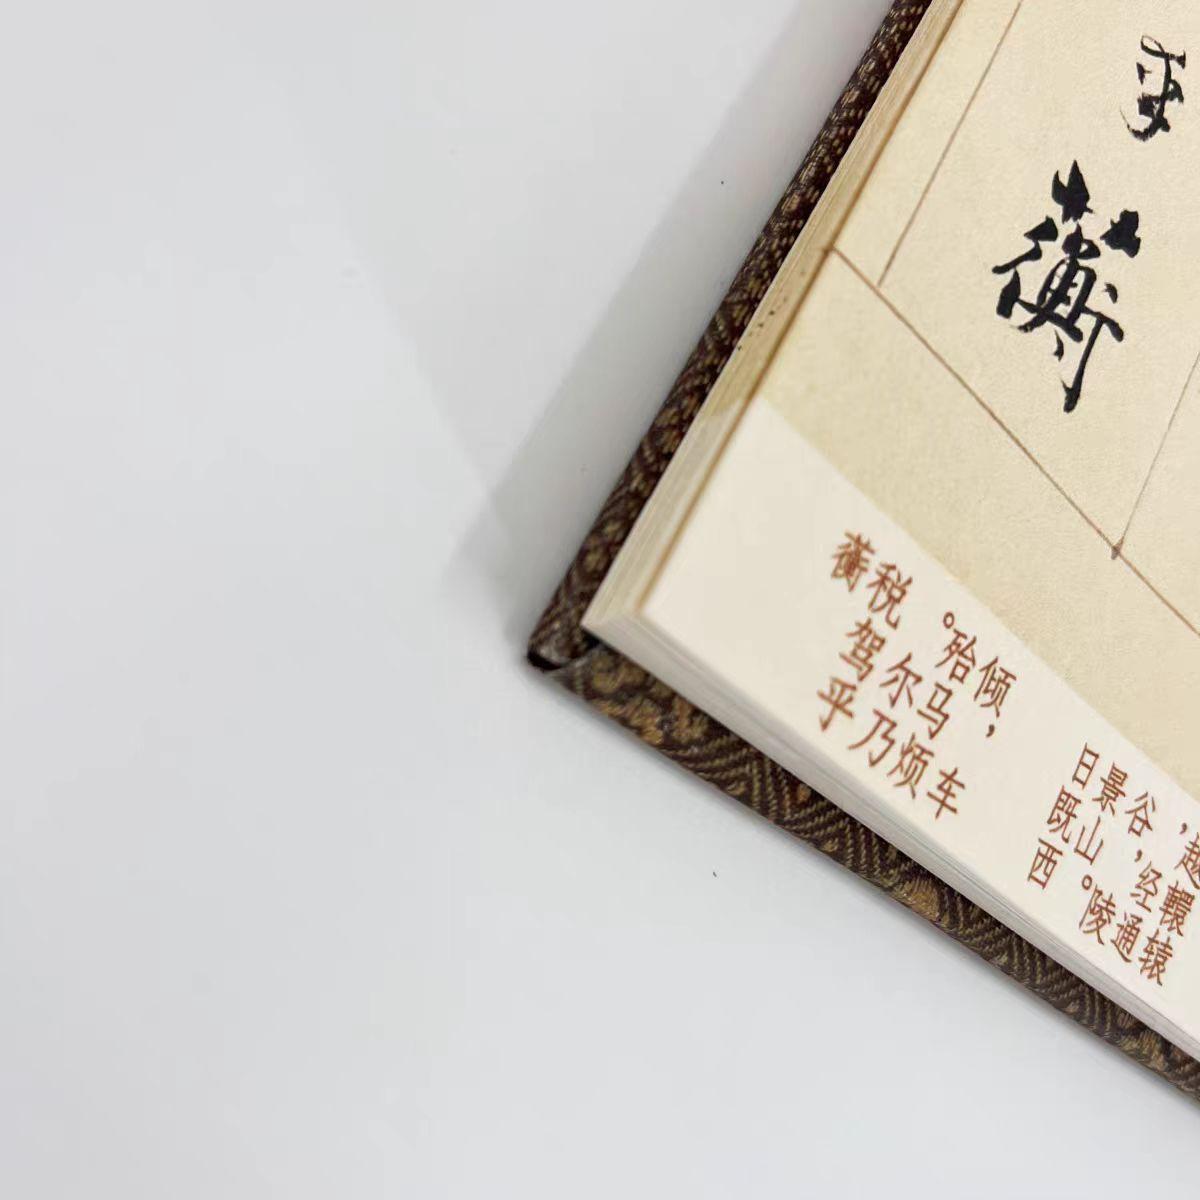 乎蘅
越轘辕
,经通
谷,陵
景山。
日既西
倾,车
殆马烦
。尔乃
税驾乎
蘅